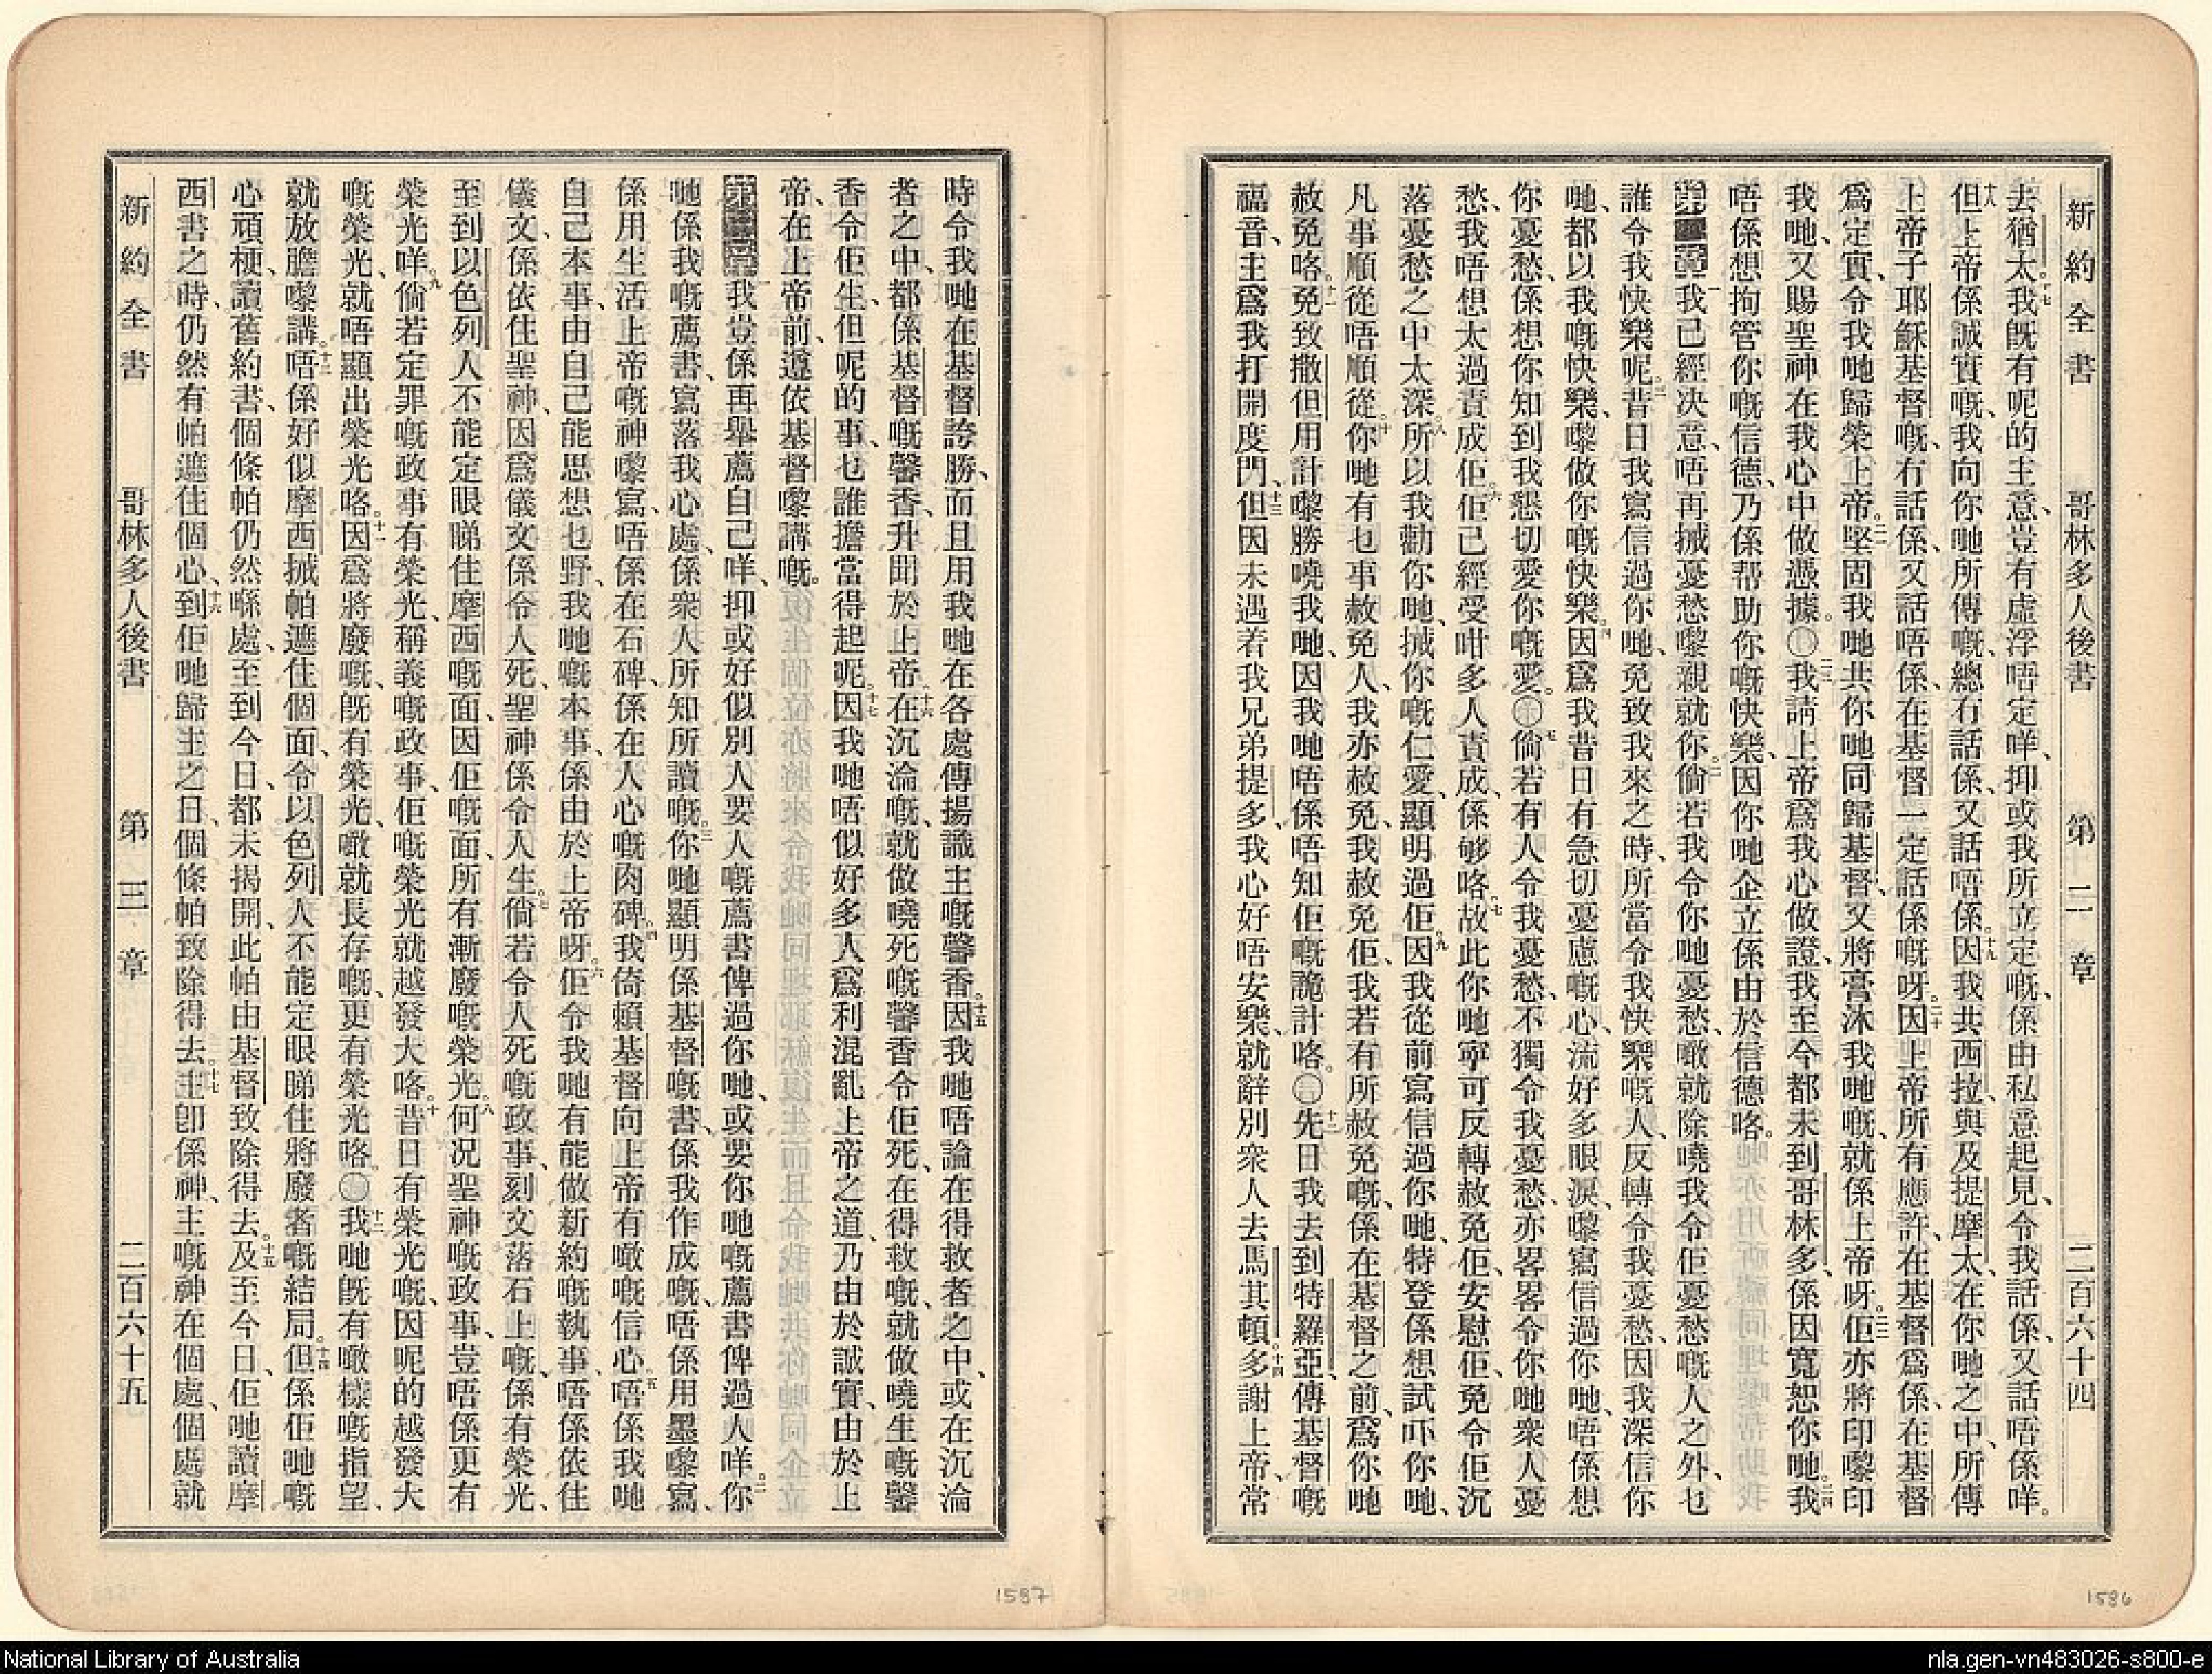 新約全書 哥林多人後書 第二章 二百六十四
去猶太。十七我既有呢的主意、豈有虛浮唔定咩、抑或我所立定嘅、係由私意起見、令我話係、又話唔係咩。
十八但上帝係誠實嘅、我向你哋所傳嘅、總冇話係、又話唔係。十九因我共西拉、與及提摩太、在你哋之中、所傳
上帝子耶穌基督嘅、冇話係、又話唔係、在基督一定話係嘅呀。二十因上帝所有應許、在基督爲係、在基督
爲定實、令我哋歸榮上帝。二一堅固我哋共你哋同歸基督、又將膏沐我哋嘅、就係上帝呀。二二佢亦將印嚟印
我哋、又賜聖神在我心中做憑據。〇二三我請上帝爲我心做證、我至今都未到哥林多、係因寬恕你哋。二四我
唔係想拘管你嘅信德、乃係帮助你嘅快樂、因你哋企立係由於信德咯。
第二章一我已經决意、唔再搣憂愁嚟親就你。二倘若我令你哋憂愁、噉就除嘵我令佢憂愁嘅人之外、乜
誰令我快樂呢。三昔日我寫信過你哋、免致我來之時、所當令我快樂嘅人、反轉令我憂愁、因我深信你
哋、都以我嘅快樂、嚟做你嘅快樂。四因爲我昔日有急切憂慮嘅心、流好多眼淚、嚟寫信過你哋、唔係想
你憂愁、係想你知到我懇切愛你嘅愛。〇五倘若有人令我憂愁、不獨令我憂愁、亦畧畧令你哋衆人憂
愁、我唔想太過責成佢。六佢已經受咁多人責成、係够咯。七故此你哋寧可反轉赦免佢、安慰佢、免令佢沉
落憂愁之中太深。八所以我勸你哋、搣你嘅仁愛、顯明過佢。九因我從前寫信過你哋、特登係想試吓你哋、
凡事順從唔順從。十你哋有乜事赦免人、我亦赦免、我赦免佢、我若有所赦免嘅、係在基督之前、爲你哋
赦免咯。十一免致撒但用計嚟勝嘵我哋、因我哋唔係唔知佢嘅詭計咯。〇十二先日我去到特羅亞、傳基督嘅
福音、主爲我打開度門、十三但因未遇着我兄弟提多、我心好唔安樂、就辭別衆人去馬其頓。十四多謝上帝、常
1586
時令我哋在基督誇勝、而且用我哋在各處傳揚識主嘅馨香。十五因我哋唔論在得救者之中、或在沉淪
者之中、都係基督嘅馨香、升聞於上帝。十六在沉淪嘅、就做嘵死嘅馨香令佢死、在得救嘅、就做嘵生嘅馨
香令佢生、但呢的事、乜誰擔當得起呢。十七因我哋唔似好多人爲利混亂上帝之道、乃由於誠實、由於上
帝、在上帝前、遵依基督嚟講嘅。
第三章一我豈係再舉薦自己咩、抑或好似別人要人嘅薦書俾過你哋、或要你哋嘅薦書俾過人咩。二你
哋係我嘅薦書、寫落我心處、係衆人所知所讀嘅。三你哋顯明係基督嘅書、係我作成嘅、唔係用墨嚟寫、
係用生活上帝嘅神嚟寫、唔係在石碑、係在人心嘅肉碑。四我倚賴基督向上帝有噉嘅信心。五唔係我哋
自己本事、由自己能思想乜野、我哋嘅本事、係由於上帝呀。六佢令我哋有能做新約嘅執事、唔係依住
儀文、係依住聖神、因爲儀文係令人死、聖神係令人生。七倘若令人死嘅政事、刻文落石上嘅、係有榮光、
至到以色列人不能定眼睇住摩西嘅面、因佢嘅面、所有漸廢嘅榮光。八何况聖神嘅政事、豈唔係更有
榮光咩。九倘若定罪嘅政事有榮光、稱義嘅政事、佢嘅榮光就越發大咯。十昔日有榮光嘅、因呢的越發大
嘅榮光、就唔顯出榮光咯。十一因爲將廢嘅、既有榮光、噉就長存嘅、更有榮光咯。〇十二我哋既有噉樣嘅指望、
就放膽嚟講。十三唔係好似摩西搣帕遮住個面、令以色列人不能定眼睇住將廢者嘅結局。十四但係佢哋嘅
心頑梗、讀舊約書、個條帕仍然喺處、至到今日、都未揭開、此帕由基督致除得去。十五及至今日、佢哋讀摩
西書之時、仍然有帕遮住個心、十六到佢哋歸主之日、個條帕致除得去。十七主卽係神、主嘅神在個處、個處就
新約全書 哥林多人後書 第三章 二百六十五
1587
National Library of Australia
nla.gen-vn483026-s800-e